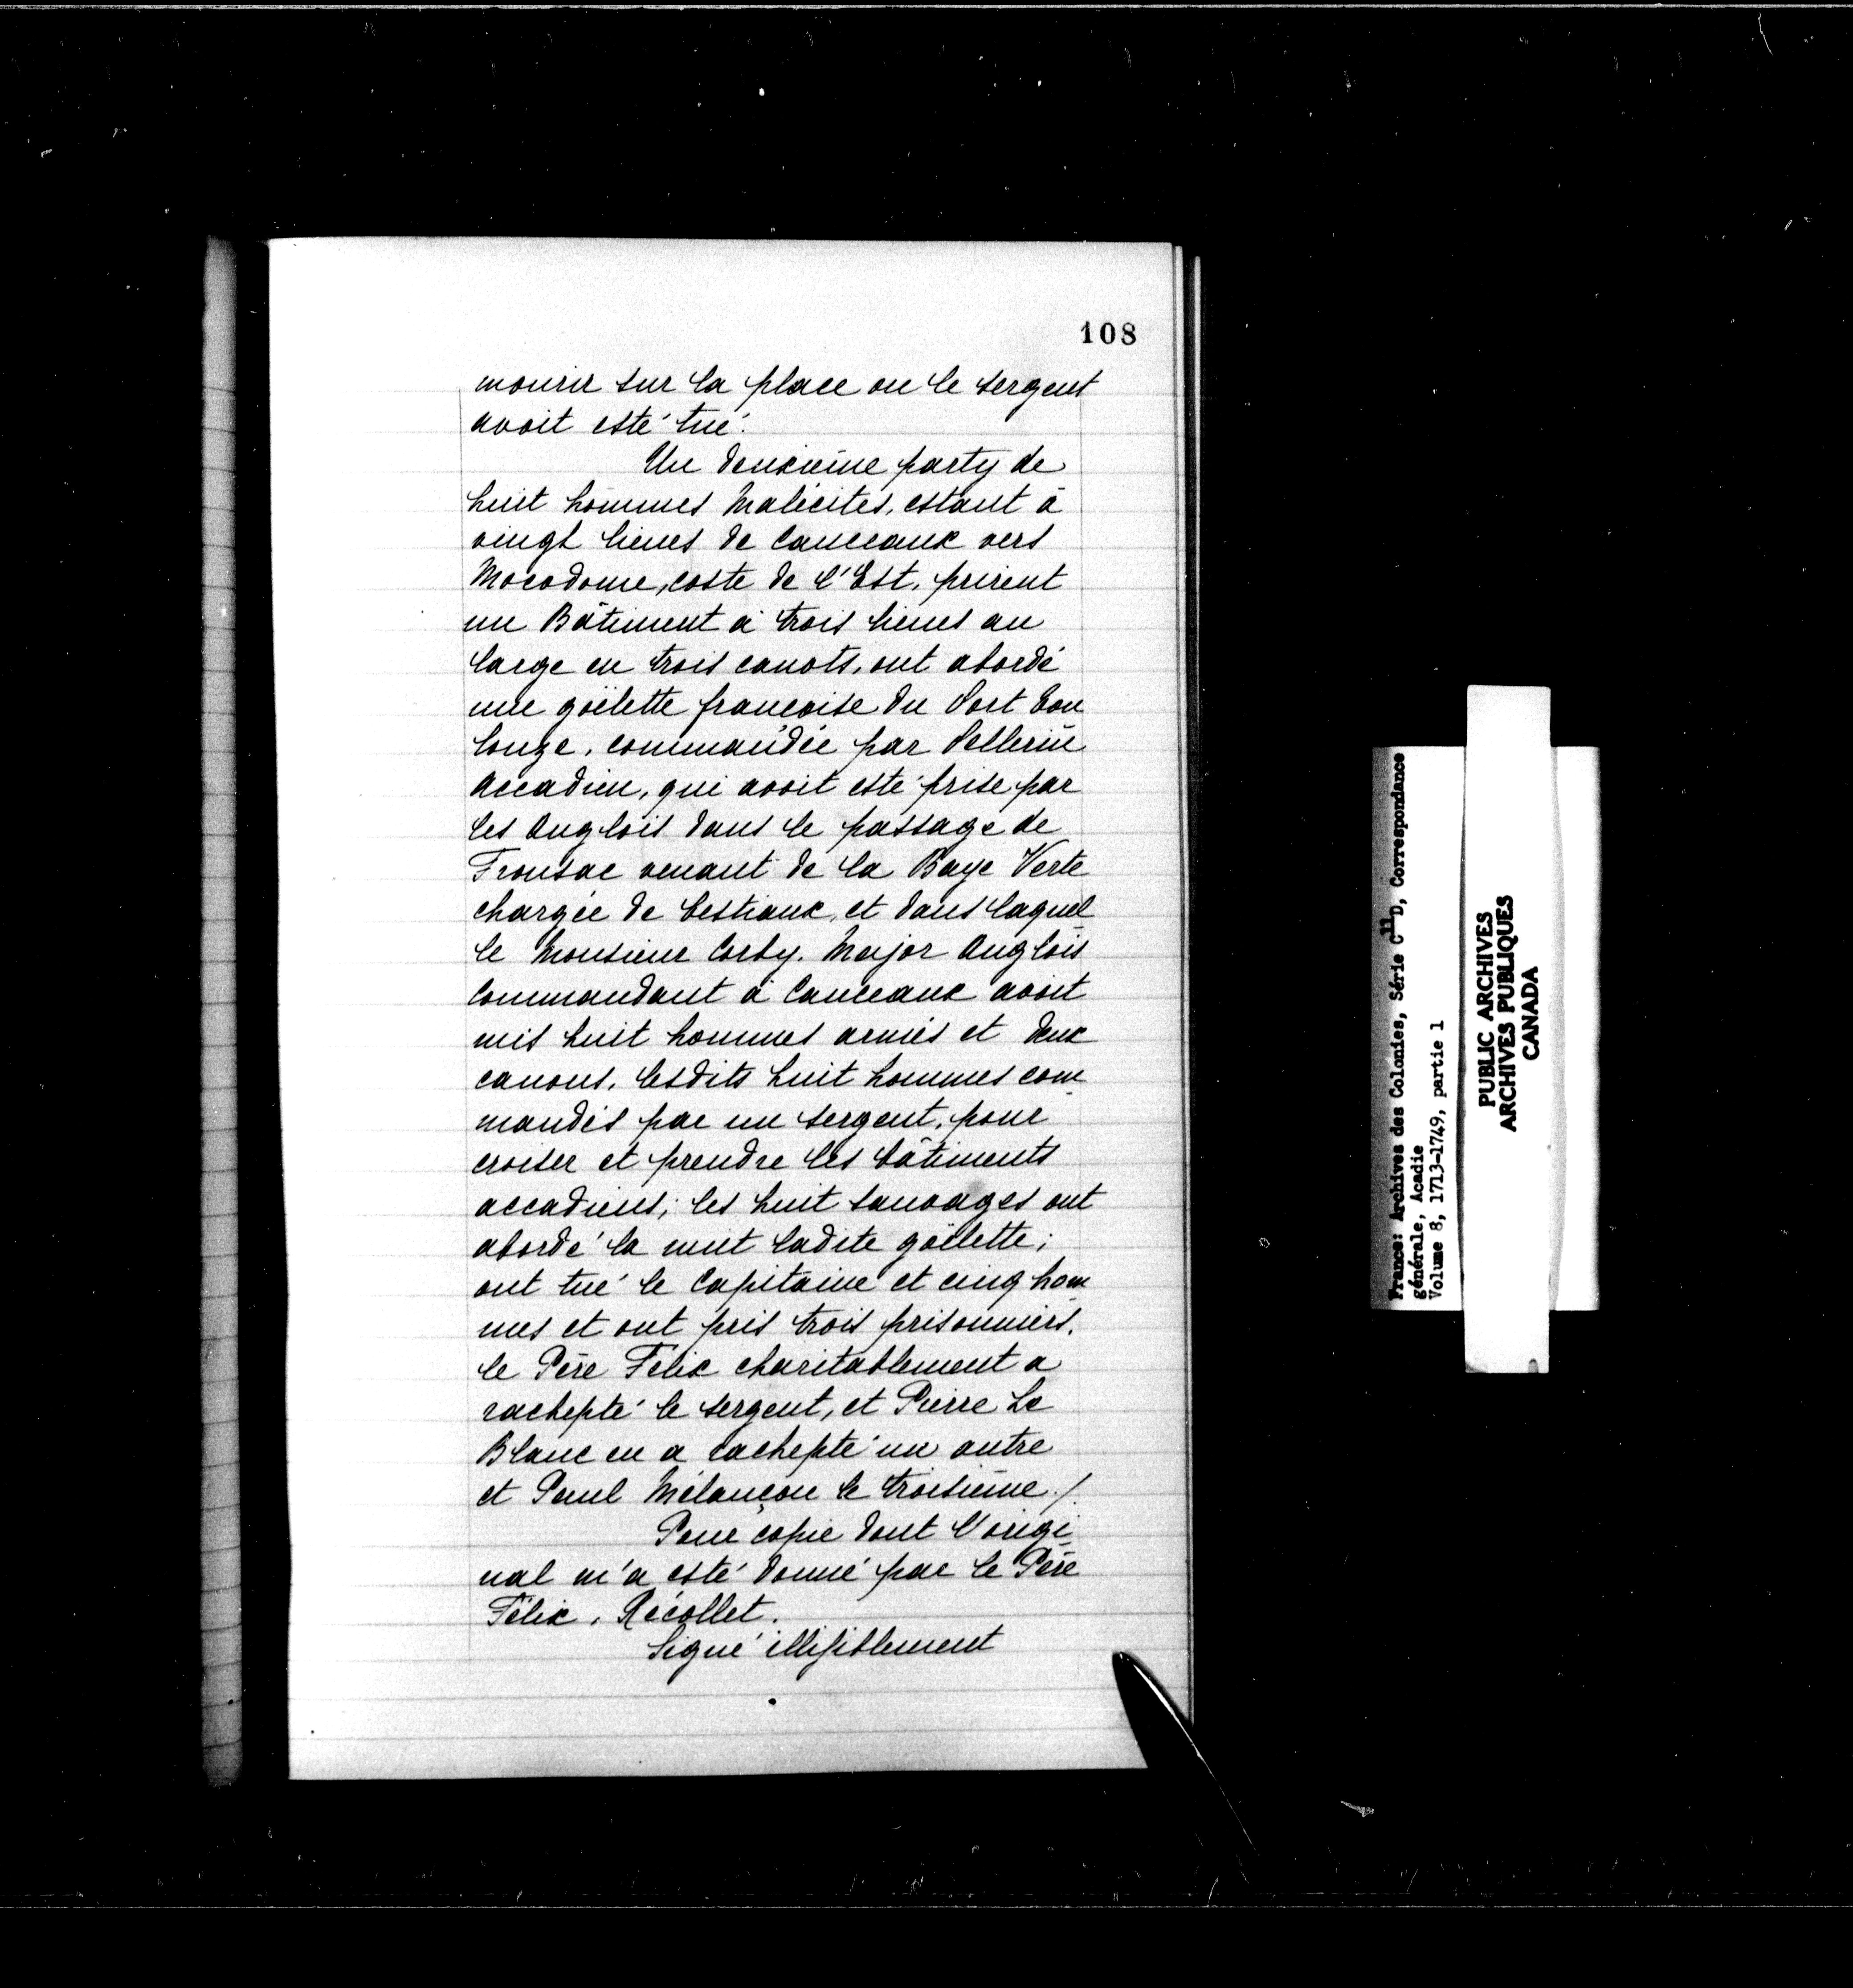 108
mourir sur la place ou le sergent
avoit esté tué.
Un deuxième party de
huit hommes Malécites, estant à
vingt lieues de Canceaux vers
Mocodome, coste de l'Est, prirent
un Bâtiment à trois lieues au
large en trois canots, ont abordé
une goëlette françoise du Port Tou
louze, commandée par Pellerin
Accadien, qui avoit esté prise par
les Anglois dans le passage de
Fronsac venant de la Baye Verte
chargée de bestiaux, et dans laquel
le Monsieur Corby, Major Anglois
Commandant à Canceaux avoit
mis huit hommes armés et deux
canons, lesdits huit hommes com
mandés par un sergent, pour
croiser et prendre les bâtiments
accadiens; les huit sauvages ont
abordé la nuit ladite goëlette;
ont tué le Capitaine et cinq hom
mes et ont pris trois prisonniers,
le Père Félix charitablement a
rachepté le sergent, et Pierre Le
Blanc en a rachepté un autre
et Paul Mélançon le troisième ./.
Pour copie dont l'origi
nal m'a esté donné par le Père
Félix, Récollet.
Signé illisiblement
France: Archives des Colonies, Série C11D, Correspondance
générale, Acadie
Volume 8, 1713-1749, partie 1
PUBLIC ARCHIVES
ARCHIVES PUBLIQUES
CANADA